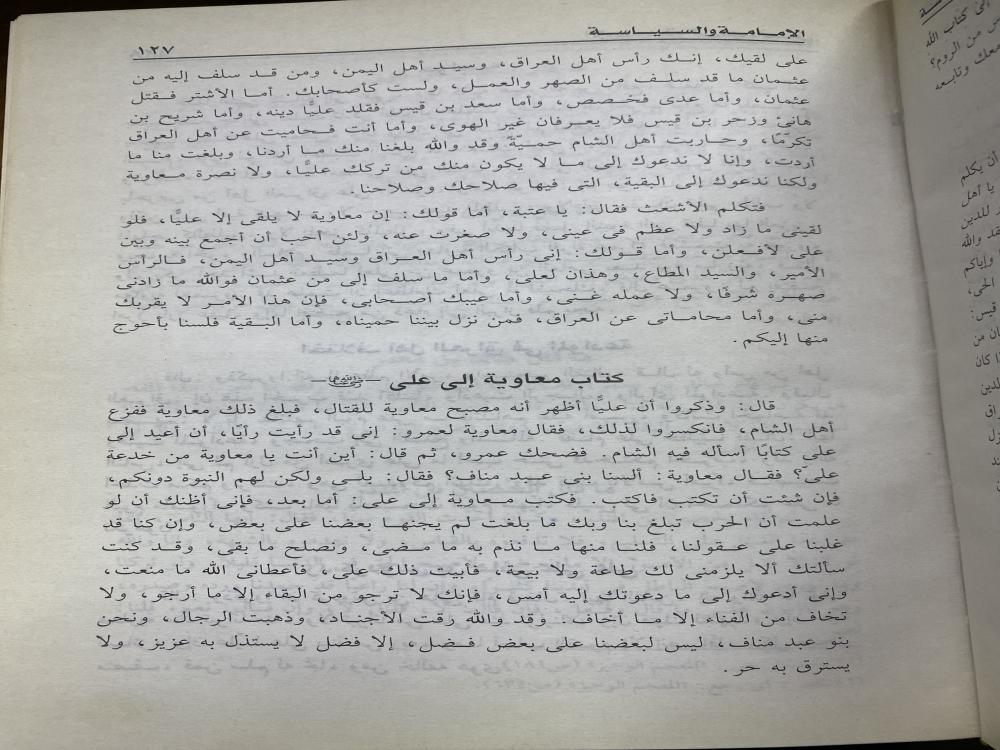 الإمامة والسياسة
١٢٧
على لقيك، إنك رأس أهل العراق، وسيد أهل اليمن، ومن قد سلف إليه من
عثمان ما قد سلف من الصهر والعمل، ولست كأصحابك. أما الأشتر فقتل
عثمان، وأما عدى فخصص، وأما سعد بن قيس فقلد عليًا دينه، وأما شريح بن
هانئ وزحر بن قيس فلا يعرفان غير الهوى، وأما أنت فحاميت عن أهل العراق
تكرمًا، وحاربت أهل الشام حميةً وقد والله بلغنا منك ما أردنا، وبلغت منا ما
أردت، وإنا لا ندعوك إلى ما لا يكون منك من تركك عليًا، ولا نصرة معاوية
ولكنا ندعوك إلى البقية، التى فيها صلاحك وصلاحنا.
فتكلم الأشعث فقال: يا عتبة، أما قولك: إن معاوية لا يلقى إلا عليًا، فلو
لقينى ما زاد ولا عظم فى عينى، ولا صغرت عنه، ولئن أحب أن أجمع بينه وبين
على لأفعلن، وأما قولك: إنى رأس أهل العراق وسيد أهل اليمن، فالرأس
الأمير، والسيد المطاع، وهذان لعلى، وأما ما سلف إلى من عثمان فوالله ما زادنى
صهره شرفًا، ولا عمله غنى، وأما عيبك أصحابى، فإن هذا الأمر لا يقربك
منى، وأما محاماتى عن العراق، فمن نزل بيننا حميناه، وأما البقية فلسنا بأحوج
منها إليكم.
كتاب معاوية إلى على
قال: وذكروا أن عليًا أظهر أنه مصبح معاوية للقتال، فبلغ ذلك معاوية ففزع
أهل الشام، فانكسروا لذلك، فقال معاوية لعمرو: إنى قد رأيت رأيًا، أن أعيد إلى
على كتابًا أسأله فيه الشام. فضحك عمرو، ثم قال: أين أنت يا معاوية من خدعة
علىّ؟ فقال معاوية: ألسنا بنى عبد مناف؟ فقال: بلى ولكن لهم النبوة دونكم،
فإن شئت أن تكتب فاكتب. فكتب معاوية إلى على: أما بعد، فإنى أظنك أن لو
علمت أن الحرب تبلغ بنا وبك ما بلغت لم يجنها بعضنا على بعض، وإن كنا قد
غلبنا على عقولنا، فلنا منها ما نذم به ما مضى، ونصلح ما بقى، وقد كنت
سألتك ألا يلزمنى لك طاعة ولا بيعة، فأبيت ذلك على، فأعطانى الله ما منعت،
وإنى أدعوك إلى ما دعوتك إليه أمس، فإنك لا ترجو من البقاء إلا ما أرجو، ولا
تخاف من الفناء إلا ما أخاف. وقد والله رقت الأجناد، وذهبت الرجال، ونحن
بنو عبد مناف، ليس لبعضنا على بعض فضل، إلا فضل لا يستذل به عزيز، ولا
يسترق به حر.